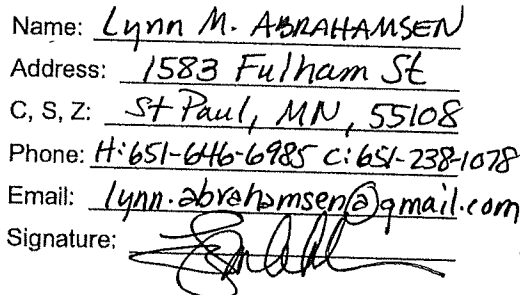 Name: Lynn M. ABRAHAMSEN
Address: 1583 Fulham St
C, S, Z: St Paul, MN, 55108
Phone: H: 651-646-6985 C: 651-238-1078
Email: lynn.abrahamsen@gmail.com
Signature: